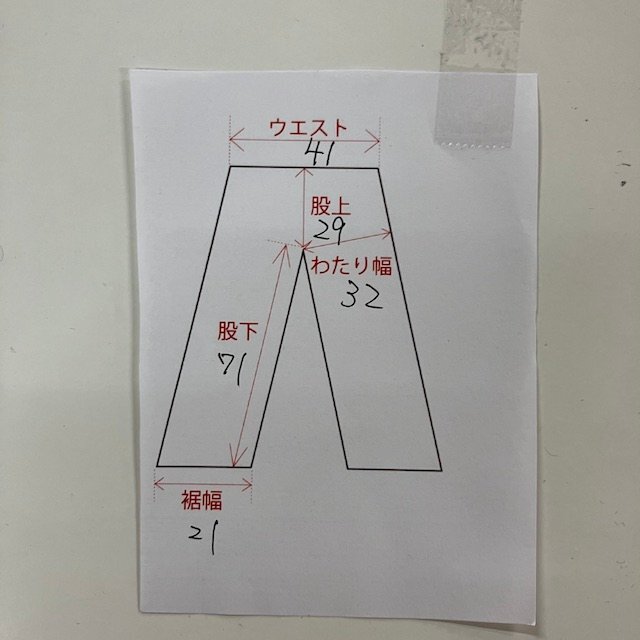 ウエスト
41
股上
29
わたり幅
32
股下
71
裾幅
21